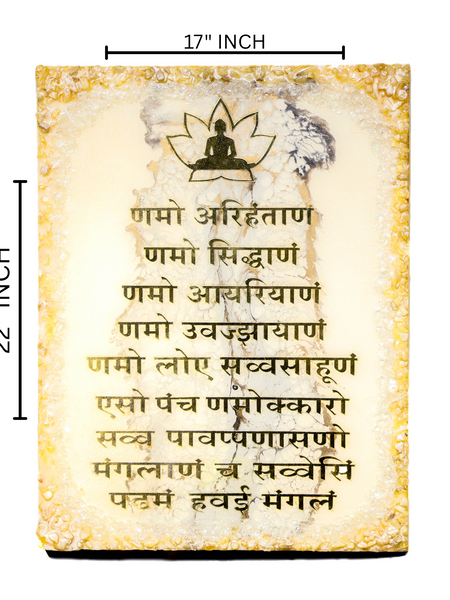 17" INCH
22" INCH
णमो अरिहंताणं
णमो सिद्धाणं
णमो आयरियाणं
णमो उवज्झायाणं
णमो लोए सव्वसाहूणं
एसो पंच णमोक्कारो
सव्व पावप्पणासणो
मंगलाणं च सव्वेसिं
पढमं हवई मंगलं